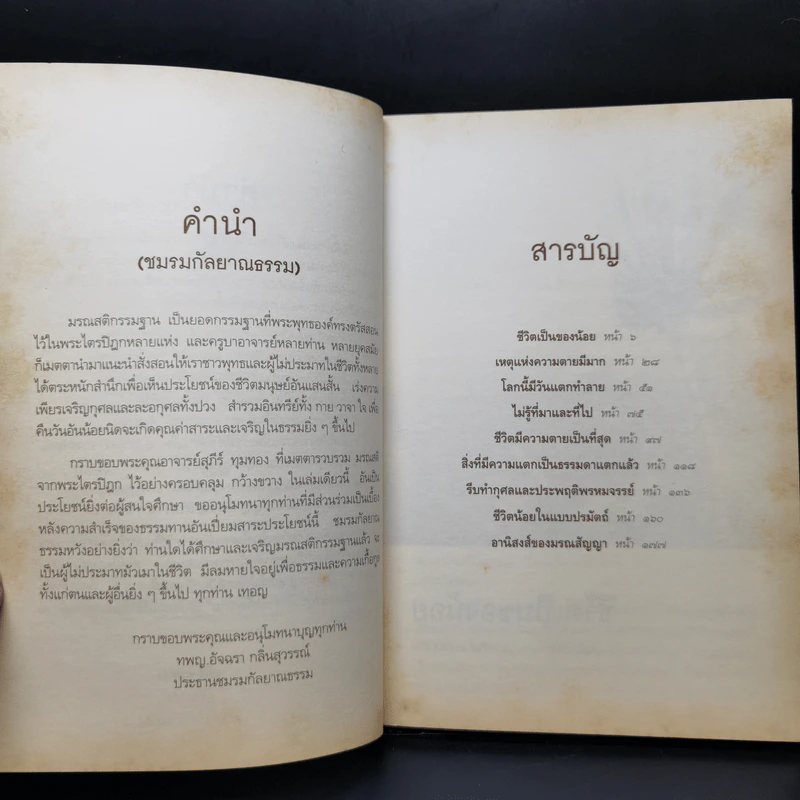 คำนำ
(ชมรมกัลยาณธรรม)
มรณสติกรรมฐาน เป็นยอดกรรมฐานที่พระพุทธองค์ทรงตรัสสอน
ไว้ในพระไตรปิฎกหลายแห่ง และครูบาอาจารย์หลายท่าน หลายยุคสมัย
ก็เมตตานำมาแนะนำสั่งสอนให้เราชาวพุทธและผู้ไม่ประมาทในชีวิตทั้งหลาย
ได้ตระหนักสำนึกเพื่อเห็นประโยชน์ของชีวิตมนุษย์อันแสนสั้น เร่งความ
เพียรเจริญกุศลและละอกุศลทั้งปวง สำรวมอินทรีย์ทั้ง กาย วาจา ใจ เพื่อ
คืนวันอันน้อยนิดจะเกิดคุณค่าสาระและเจริญในธรรมยิ่ง ๆ ขึ้นไป
กราบขอบพระคุณอาจารย์สุภีร์ ทุมทอง ที่เมตตารวบรวม มรณสติ
จากพระไตรปิฎก ไว้อย่างครอบคลุม กว้างขวาง ในเล่มเดียวนี้ อันเป็น
ประโยชน์ยิ่งต่อผู้สนใจศึกษา ขออนุโมทนาทุกท่านที่มีส่วนร่วมเป็นเบื้อง
หลังความสำเร็จของธรรมทานอันเปี่ยมสาระประโยชน์นี้ ชมรมกัลยาณ
ธรรมหวังอย่างยิ่งว่า ท่านใดได้ศึกษาและเจริญมรณสติกรรมฐานแล้ว จะ
เป็นผู้ไม่ประมาทมัวเมาในชีวิต มีลมหายใจอยู่เพื่อธรรมและความเกื้อกูล
ทั้งแก่ตนและผู้อื่นยิ่ง ๆ ขึ้นไป ทุกท่าน เทอญ
กราบขอบพระคุณและอนุโมทนาบุญทุกท่าน
ทพญ.อัจฉรา กลิ่นสุวรรณ์
ประธานชมรมกัลยาณธรรม
สารบัญ
ชีวิตเป็นของน้อย หน้า ๖
เหตุแห่งความตายมีมาก หน้า ๒๘
โลกนี้มีวันแตกทำลาย หน้า ๕๑
ไม่รู้ที่มาและที่ไป หน้า ๗๕
ชีวิตมีความตายเป็นที่สุด หน้า ๙๗
สิ่งที่มีความแตกเป็นธรรมดาแตกแล้ว หน้า ๑๑๘
รีบทำกุศลและประพฤติพรหมจรรย์ หน้า ๑๓๖
ชีวิตน้อยในแบบปรมัตถ์ หน้า ๑๖๐
อานิสงส์ของมรณสัญญา หน้า ๑๗๗